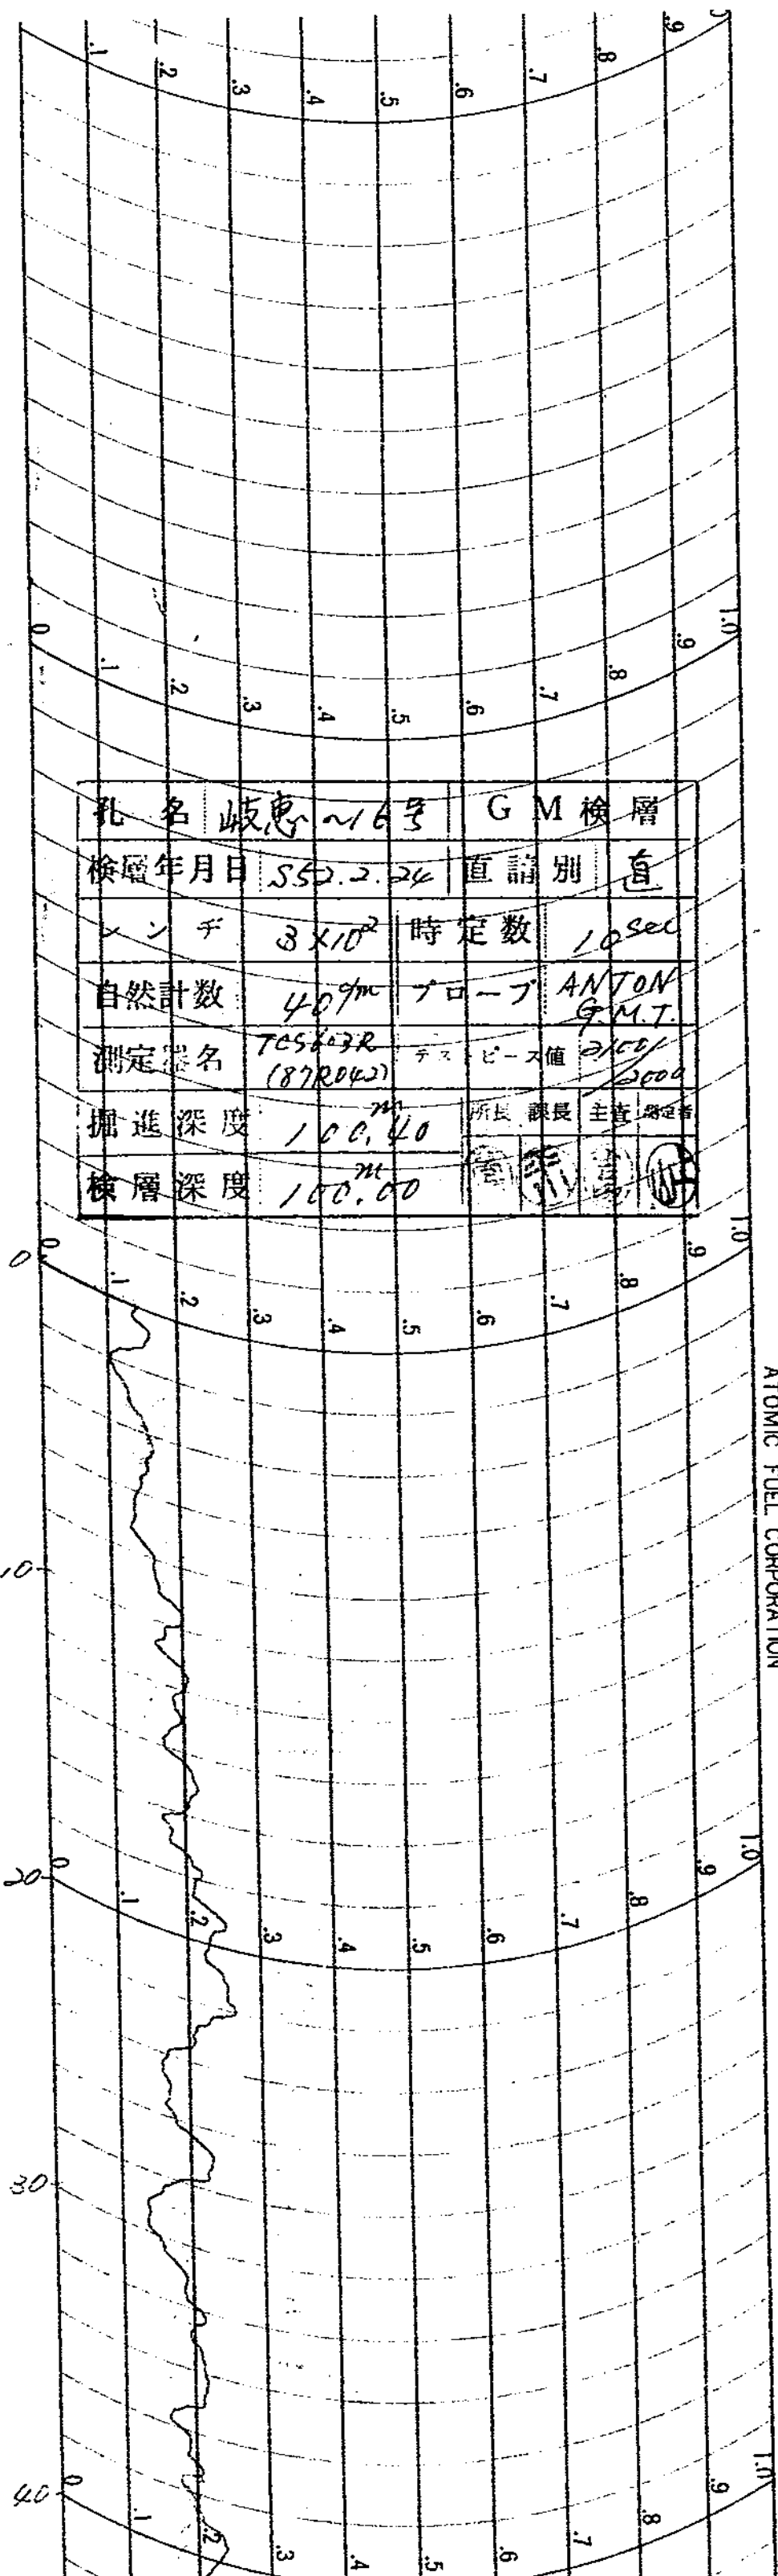 .1 .2 .3 .4 .5 .6 .7 .8 .9
0 .1 .2 .3 .4 .5 .6 .7 .8 .9 1.0
孔名 岐恵~16号 GM検層
検層年月日 S52.2.24 直請別 直
レンヂ 3×10² 時定数 10sec
自然計数 40c/m プローブ ANTON G.M.T.
測定器名 TCS603R (87R042) テストピース値
掘進深度 100.40m 所長 課長 主査 測定者
検層深度 100.00m
0
0 .1 .2 .3 .4 .5 .6 .7 .8 .9 1.0
ATOMIC FUEL CORPORATION
10
20
0 .1 .2 .3 .4 .5 .6 .7 .8 .9 1.0
30
40
0 .1 .2 .3 .4 .5 .6 .7 .8 .9 1.0